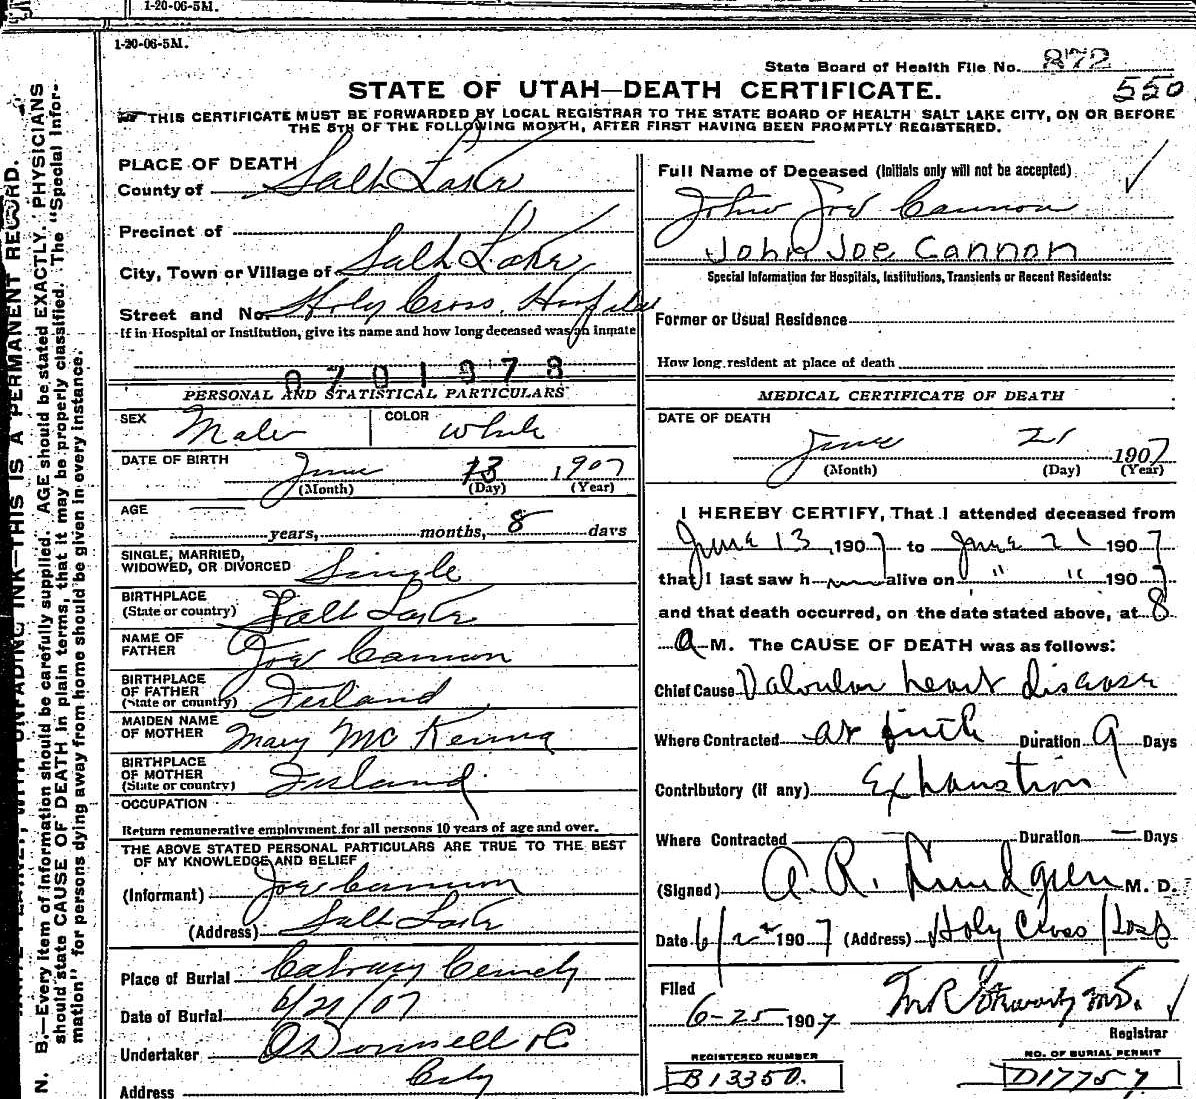 1-20-06-5M.
1-20-06-5M.
State Board of Health File No. 872
550
STATE OF UTAH—DEATH CERTIFICATE.
THIS CERTIFICATE MUST BE FORWARDED BY LOCAL REGISTRAR TO THE STATE BOARD OF HEALTH SALT LAKE CITY, ON OR BEFORE
THE 5TH OF THE FOLLOWING MONTH, AFTER FIRST HAVING BEEN PROMPTLY REGISTERED.
PLACE OF DEATH
County of Salt Lake
Precinct of
City, Town or Village of Salt Lake
Street and No. Holy Cross Hospital
If in Hospital or Institution, give its name and how long deceased was an inmate
0701978
PERSONAL AND STATISTICAL PARTICULARS
SEX Male COLOR White
DATE OF BIRTH June 13 1907
(Month) (Day) (Year)
AGE
years, months, 8 days
SINGLE, MARRIED,
WIDOWED, OR DIVORCED Single
BIRTHPLACE
(State or country) Salt Lake
NAME OF
FATHER Joe Cannon
BIRTHPLACE
OF FATHER
(State or country) Ireland
MAIDEN NAME
OF MOTHER Mary McKenna
BIRTHPLACE
OF MOTHER
(State or country) Ireland
OCCUPATION
Return remunerative employment for all persons 10 years of age and over.
THE ABOVE STATED PERSONAL PARTICULARS ARE TRUE TO THE BEST
OF MY KNOWLEDGE AND BELIEF
(Informant) Joe Cannon
(Address) Salt Lake
Place of Burial Calvary Cemety
Date of Burial 6/21/07
Undertaker O'Donnell & Co
Address City
Full Name of Deceased (Initials only will not be accepted)
John Joe Cannon
John Joe Cannon
Special Information for Hospitals, Institutions, Transients or Recent Residents:
Former or Usual Residence
How long resident at place of death
MEDICAL CERTIFICATE OF DEATH
DATE OF DEATH
June 21 1907
(Month) (Day) (Year)
I HEREBY CERTIFY, That I attended deceased from
June 13, 1907 to June 21 1907
that I last saw h alive on " " 1907
and that death occurred, on the date stated above, at 8
a M. The CAUSE OF DEATH was as follows:
Chief Cause Valvular heart disease
Where Contracted at birth Duration 9 Days
Contributory (if any) Exhaustion
Where Contracted — Duration — Days
(Signed) A. R. Lundgren M. D.
Date 6/22 1907 (Address) Holy Cross Hosp
Filed
6-25 1907 M.D.
Registrar
REGISTERED NUMBER
B13350.
NO. OF BURIAL PERMIT
D17757.
WITH UNFADING INK—THIS IS A PERMANENT RECORD.
N. B.—Every item of information should be carefully supplied. AGE should be stated EXACTLY. PHYSICIANS
should state CAUSE OF DEATH in plain terms, that it may be properly classified. The "Special Infor-
mation" for persons dying away from home should be given in every instance.